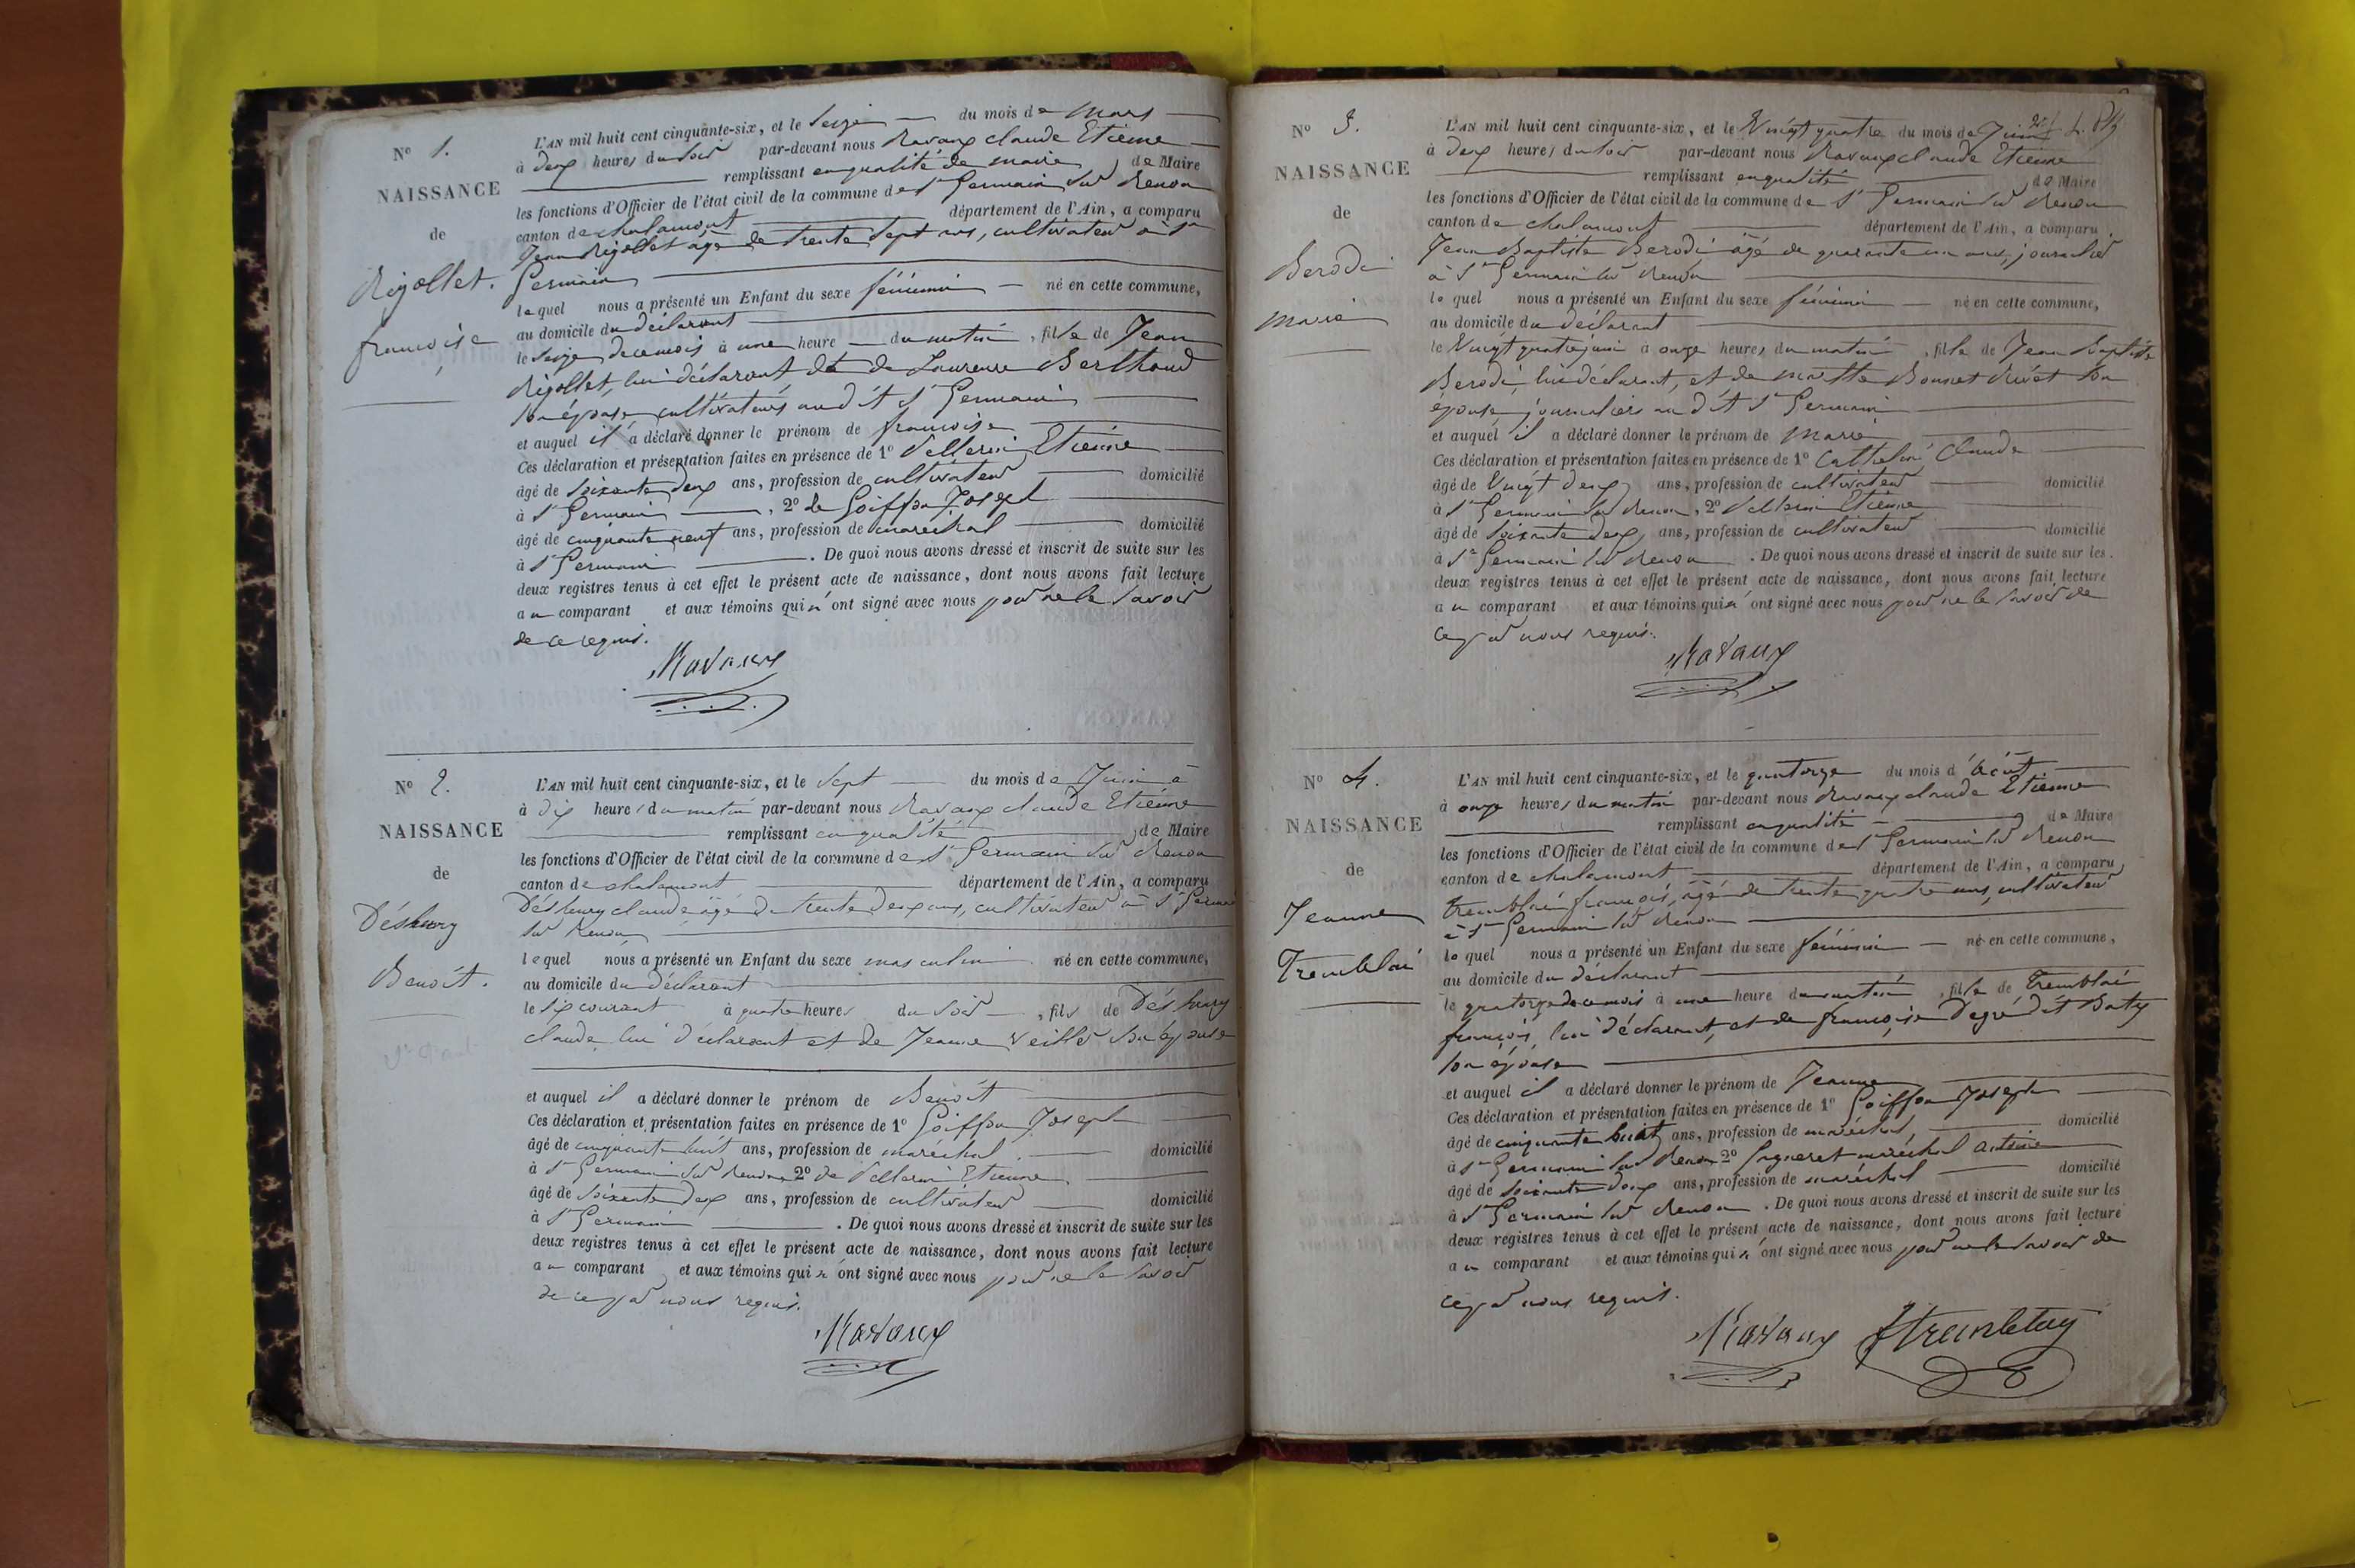 N° 1.
NAISSANCE
de
Rigollet.
françoise
L'AN mil huit cent cinquante-six, et le Seize du mois de Mars
à deux heures du soir par-devant nous Ravaux claude Etienne
remplissant en qualité de maire de Maire
les fonctions d'Officier de l'état civil de la commune de St Germain sur Renon
canton de chalamont département de l'Ain, a comparu
Jean Rigollet âgé de trente sept ans, cultivateur à St
Germain
lequel nous a présenté un Enfant du sexe féminin né en cette commune,
au domicile du déclarant
le seize de ce mois à une heure du matin, fille de Jean
Rigollet, lui déclarant et de Laurence Berthoud
son épouse, cultivateurs au dit St Germain
et auquel il a déclaré donner le prénom de françoise
Ces déclaration et présentation faites en présence de 1° Vellerin Etienne
âgé de soixante deux ans, profession de cultivateur domicilié
à St Germain, 2° de Goiffon Joseph
âgé de cinquante neuf ans, profession de maréchal domicilié
à St Germain. De quoi nous avons dressé et inscrit de suite sur les
deux registres tenus à cet effet le présent acte de naissance, dont nous avons fait lecture
au comparant et aux témoins qui n'ont signé avec nous pour ne le savoir
de ce requis.
Ravaux
N° 2.
NAISSANCE
de
Déshury
Benoît.
L'AN mil huit cent cinquante-six, et le Sept du mois de Juin à
à dix heures du matin par-devant nous Ravaux claude Etienne
remplissant en qualité de Maire
les fonctions d'Officier de l'état civil de la commune de St Germain sur Renon
canton de chalamont département de l'Ain, a comparu
Déshury claude âgé de trente deux ans, cultivateur à St Germain
sur Renon
lequel nous a présenté un Enfant du sexe masculin né en cette commune,
au domicile du déclarant
le six courant à quatre heures du soir, fils de Déshury
claude, lui déclarant et de Jeanne Veillet son épouse
et auquel il a déclaré donner le prénom de Benoît
Ces déclaration et présentation faites en présence de 1° Goiffon Joseph
âgé de cinquante huit ans, profession de maréchal domicilié
à St Germain sur Renon 2° de Vellerin Etienne
âgé de soixante deux ans, profession de cultivateur domicilié
à St Germain. De quoi nous avons dressé et inscrit de suite sur les
deux registres tenus à cet effet le présent acte de naissance, dont nous avons fait lecture
au comparant et aux témoins qui n'ont signé avec nous pour ne le savoir
de ce par nous requis.
Ravaux
N° 3.
NAISSANCE
de
Berodi
marie
L'AN mil huit cent cinquante-six, et le Vingt quatre du mois de Juin
à deux heures du soir par-devant nous Ravaux claude Etienne
remplissant en qualité de Maire
les fonctions d'Officier de l'état civil de la commune de St Germain sur Renon
canton de chalamont département de l'Ain, a comparu
Jean Baptiste Berodi âgé de quarante un ans, journalier
à St Germain sur Renon
lequel nous a présenté un Enfant du sexe féminin né en cette commune,
au domicile du déclarant
le Vingt quatre juin à onze heures du matin, fille de Jean Baptiste
Berodi, lui déclarant, et de Bonnet son
épouse, journaliers au dit St Germain
et auquel il a déclaré donner le prénom de Marie
Ces déclaration et présentation faites en présence de 1° Cathelin Claude
âgé de Vingt deux ans, profession de cultivateur domicilié
à St Germain sur Renon, 2° Vellerin Etienne
âgé de soixante deux ans, profession de cultivateur domicilié
à St Germain sur Renon. De quoi nous avons dressé et inscrit de suite sur les
deux registres tenus à cet effet le présent acte de naissance, dont nous avons fait lecture
au comparant et aux témoins qui n'ont signé avec nous pour ne le savoir de
ce par nous requis.
Ravaux
N° 4.
NAISSANCE
de
Jeanne
Tremblai
L'AN mil huit cent cinquante-six, et le quatorze du mois d'Août
à onze heures du matin par-devant nous Ravaux claude Etienne
remplissant en qualité de Maire
les fonctions d'Officier de l'état civil de la commune de St Germain sur Renon
canton de chalamont département de l'Ain, a comparu
Tremblai françois, âgé de trente quatre ans, cultivateur
à St Germain sur Renon
lequel nous a présenté un Enfant du sexe féminin né en cette commune,
au domicile du déclarant
le quatorze de ce mois à une heure du matin, fille de Tremblai
françois, lui déclarant, et de françoise dit Baty
son épouse
et auquel il a déclaré donner le prénom de Jeanne
Ces déclaration et présentation faites en présence de 1° Goiffon Joseph
âgé de cinquante huit ans, profession de maréchal domicilié
à St Germain sur Renon 2° maréchal Antoine
âgé de soixante deux ans, profession de maréchal domicilié
à St Germain sur Renon. De quoi nous avons dressé et inscrit de suite sur les
deux registres tenus à cet effet le présent acte de naissance, dont nous avons fait lecture
au comparant et aux témoins qui n'ont signé avec nous pour ne le savoir de
ce par nous requis.
Ravaux ftremblay